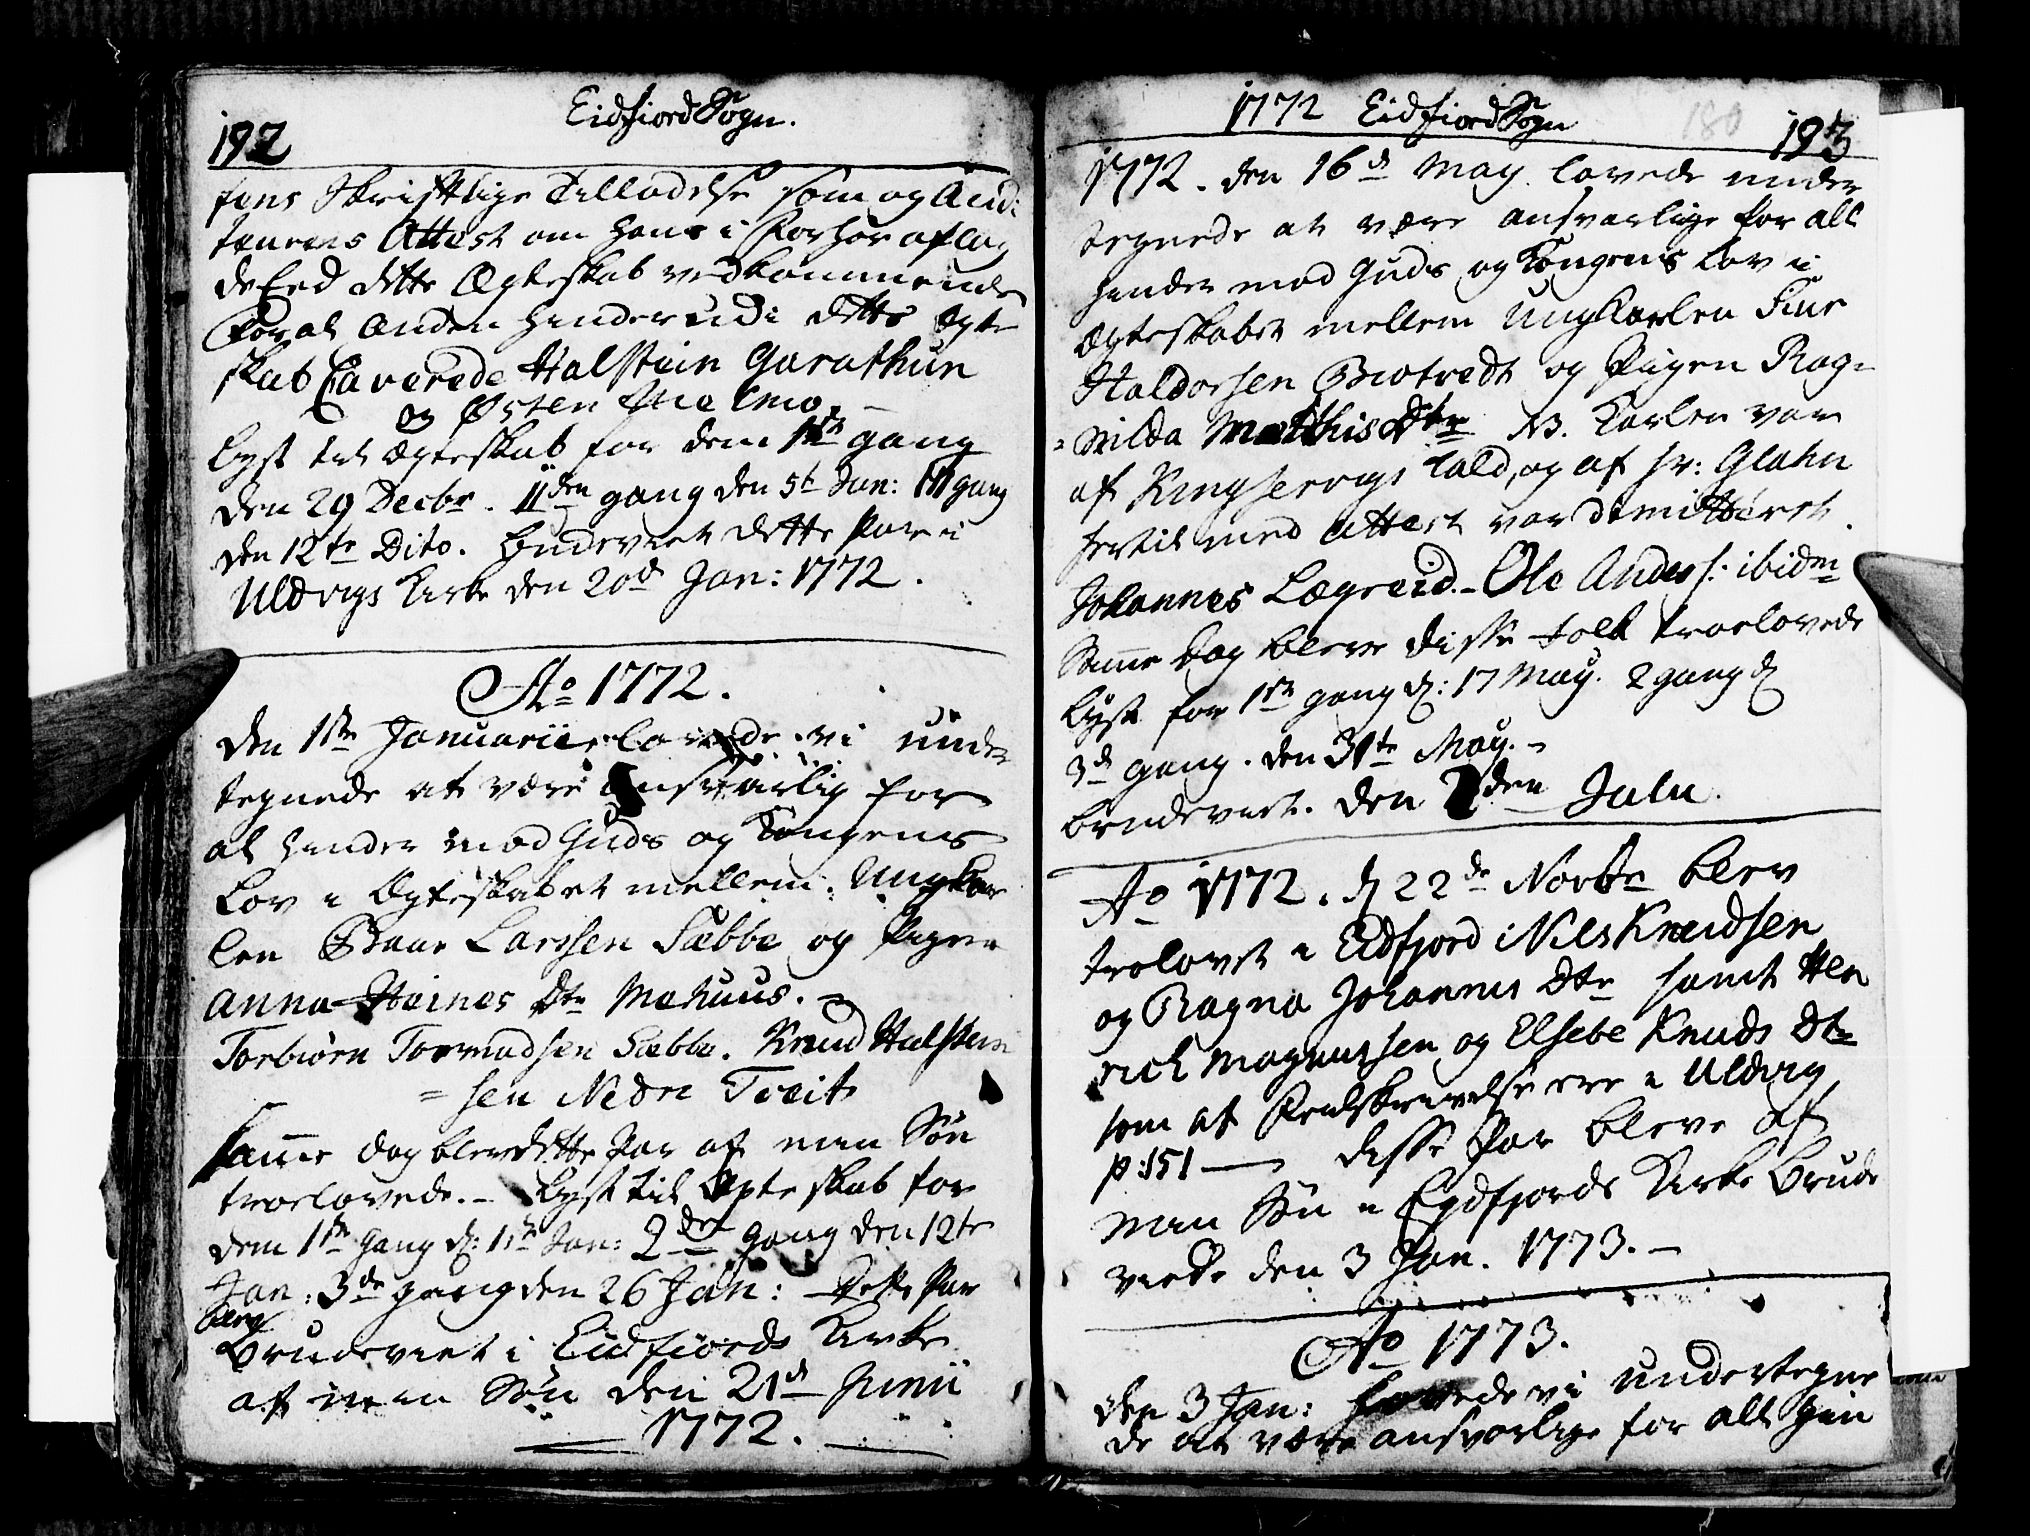 192
Eidfiord Sogn.
Skriftlige Tilladelse som og Audi
teurens Attest om hans i Forhør aflag
de Eed dette Ægteskab vedkommende
For al anden hinder udi dette Ægte
skab Caverede Halstein Garathun
og Østen Mælmo. -
lyst til Ægteskab for dem 1ste gang
den 29 Decbr. IIden gang den 5t Jan: III gang
den 12te Dito. Brudeviet dette Par i
Uldvigs Kirke den 20d Jan: 1772.
Ao 1772.
Den 1ste Januarii lovede vi under
tegnede at være answarlig for
al hinder mod Guds og Kongens
Lov i Ægteskabet mellem: Ungkar
len Baar Larssen Sæbbe og Pigen
Anna Steines Dtr Mæhuus. -
Torbiørn Tormodsen Sæbbe. Knud Halstein
= sen Nedre Tveit
Samme dag blev dette Par af min Søn
troelovede. - Lyst til Ægteskab for
dem 1ste Gang d: 1ste Jan: 2den gang den 12te
Jan: 3de gang den 26 Jan: - Dette Par
blev
Brudeviet i Eidfiords Kirke
af min Søn den 21d Junii
1772.
1772 Eidfiord Sogn
180
193
1772. den 16d May lovede under
tegnede at være ansvarlige for all
hinder mod Guds og Kongens Lov i
Ægteskabet mellem Ungkarlen Siur
Haldorsen Biotvedt og Pigen Rag=
=nilda Matthis Dtr NB. Karlen var
af Kingservigs Kald, og af Hr: Glahn
hertil med Attest var dimitteret.
Johannes Lægreid. - Ole Anders: ibidm
Samme dag bleve disse Folk troelovede
Lyst for 1ste gang d: 17 May. 2 gang d
3d gang. den 31te May. -
brudeviet. den 2den Julii.
Ao 1772. d 22de Novbr blev
trolovet i Eidfjord Nils Knudsen
og Ragna Johannes Dtr samt Hen
rich Magnussen og Elsebe Knuds Dtr
som af Feilskrivelse ere i Uldvig
p: 151 — disse Par bleve af
min Søn i Eydfjords Kirke Brude
viede den 3 Jan. 1773. -
Ao 1773.
den 3 Jan: lovede vi undertegne
de at være ansvarlige for alt hin